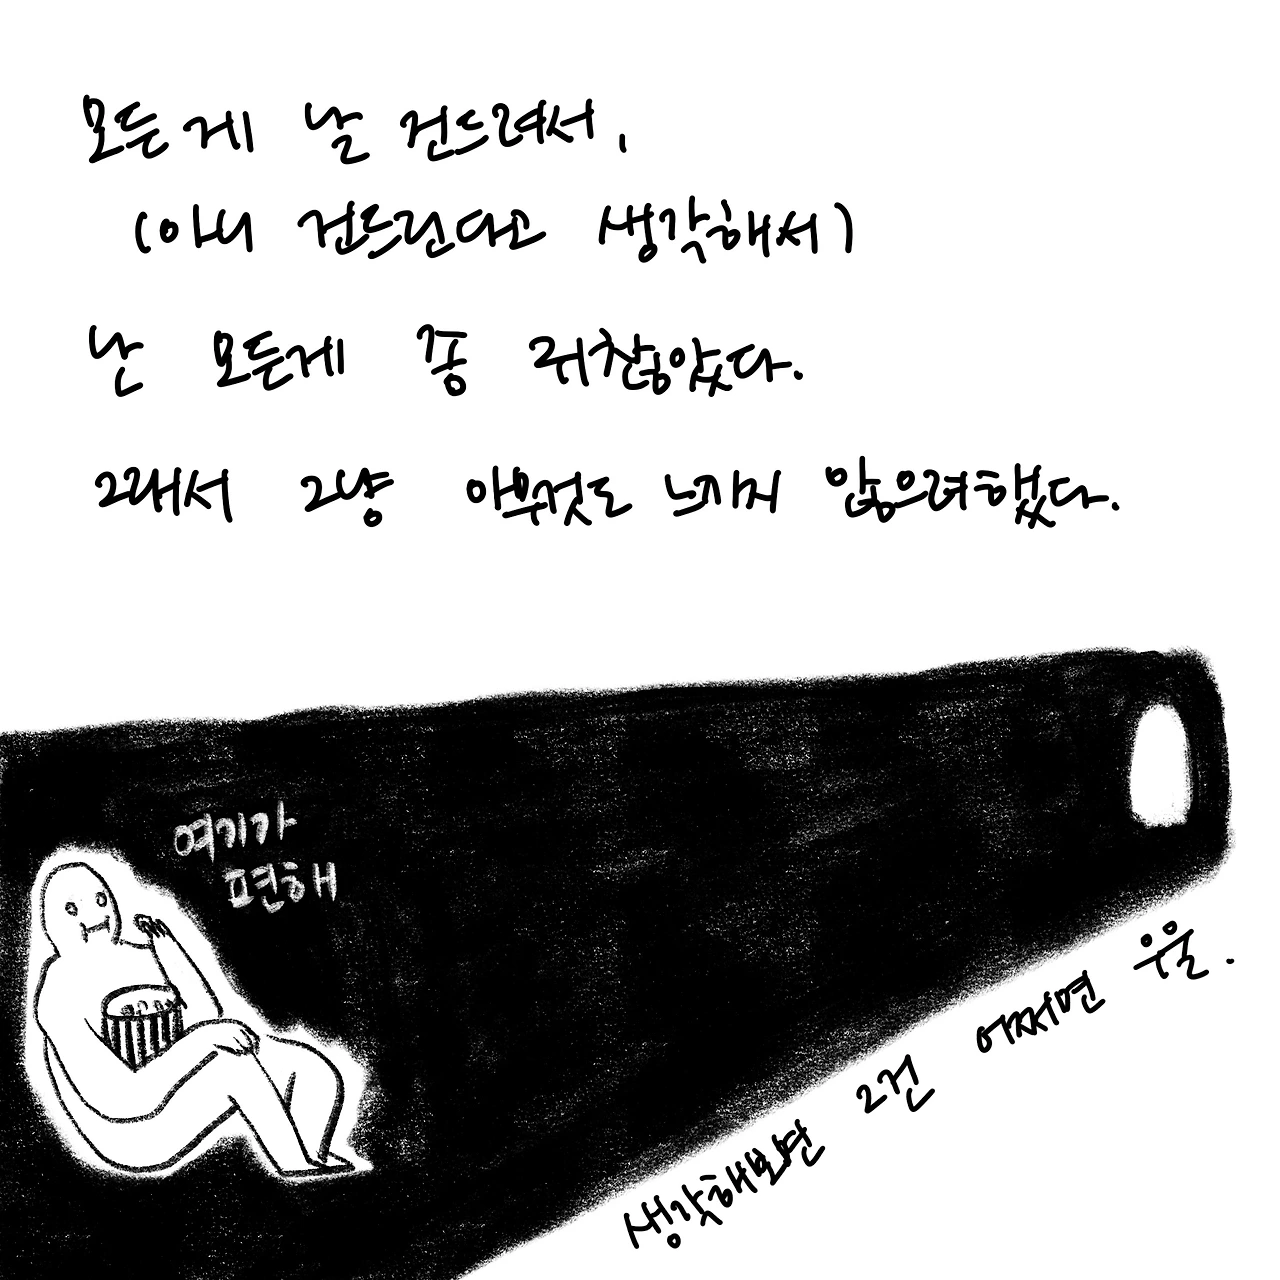 모든게 날 건드려서,
(아니 건드린다고 생각해서)
난 모든게 좀 귀찮았다.
그래서 그냥 아무것도 느끼지 않으려했다.
여기가
편해
생각해보면 그건 어쩌면 우울.